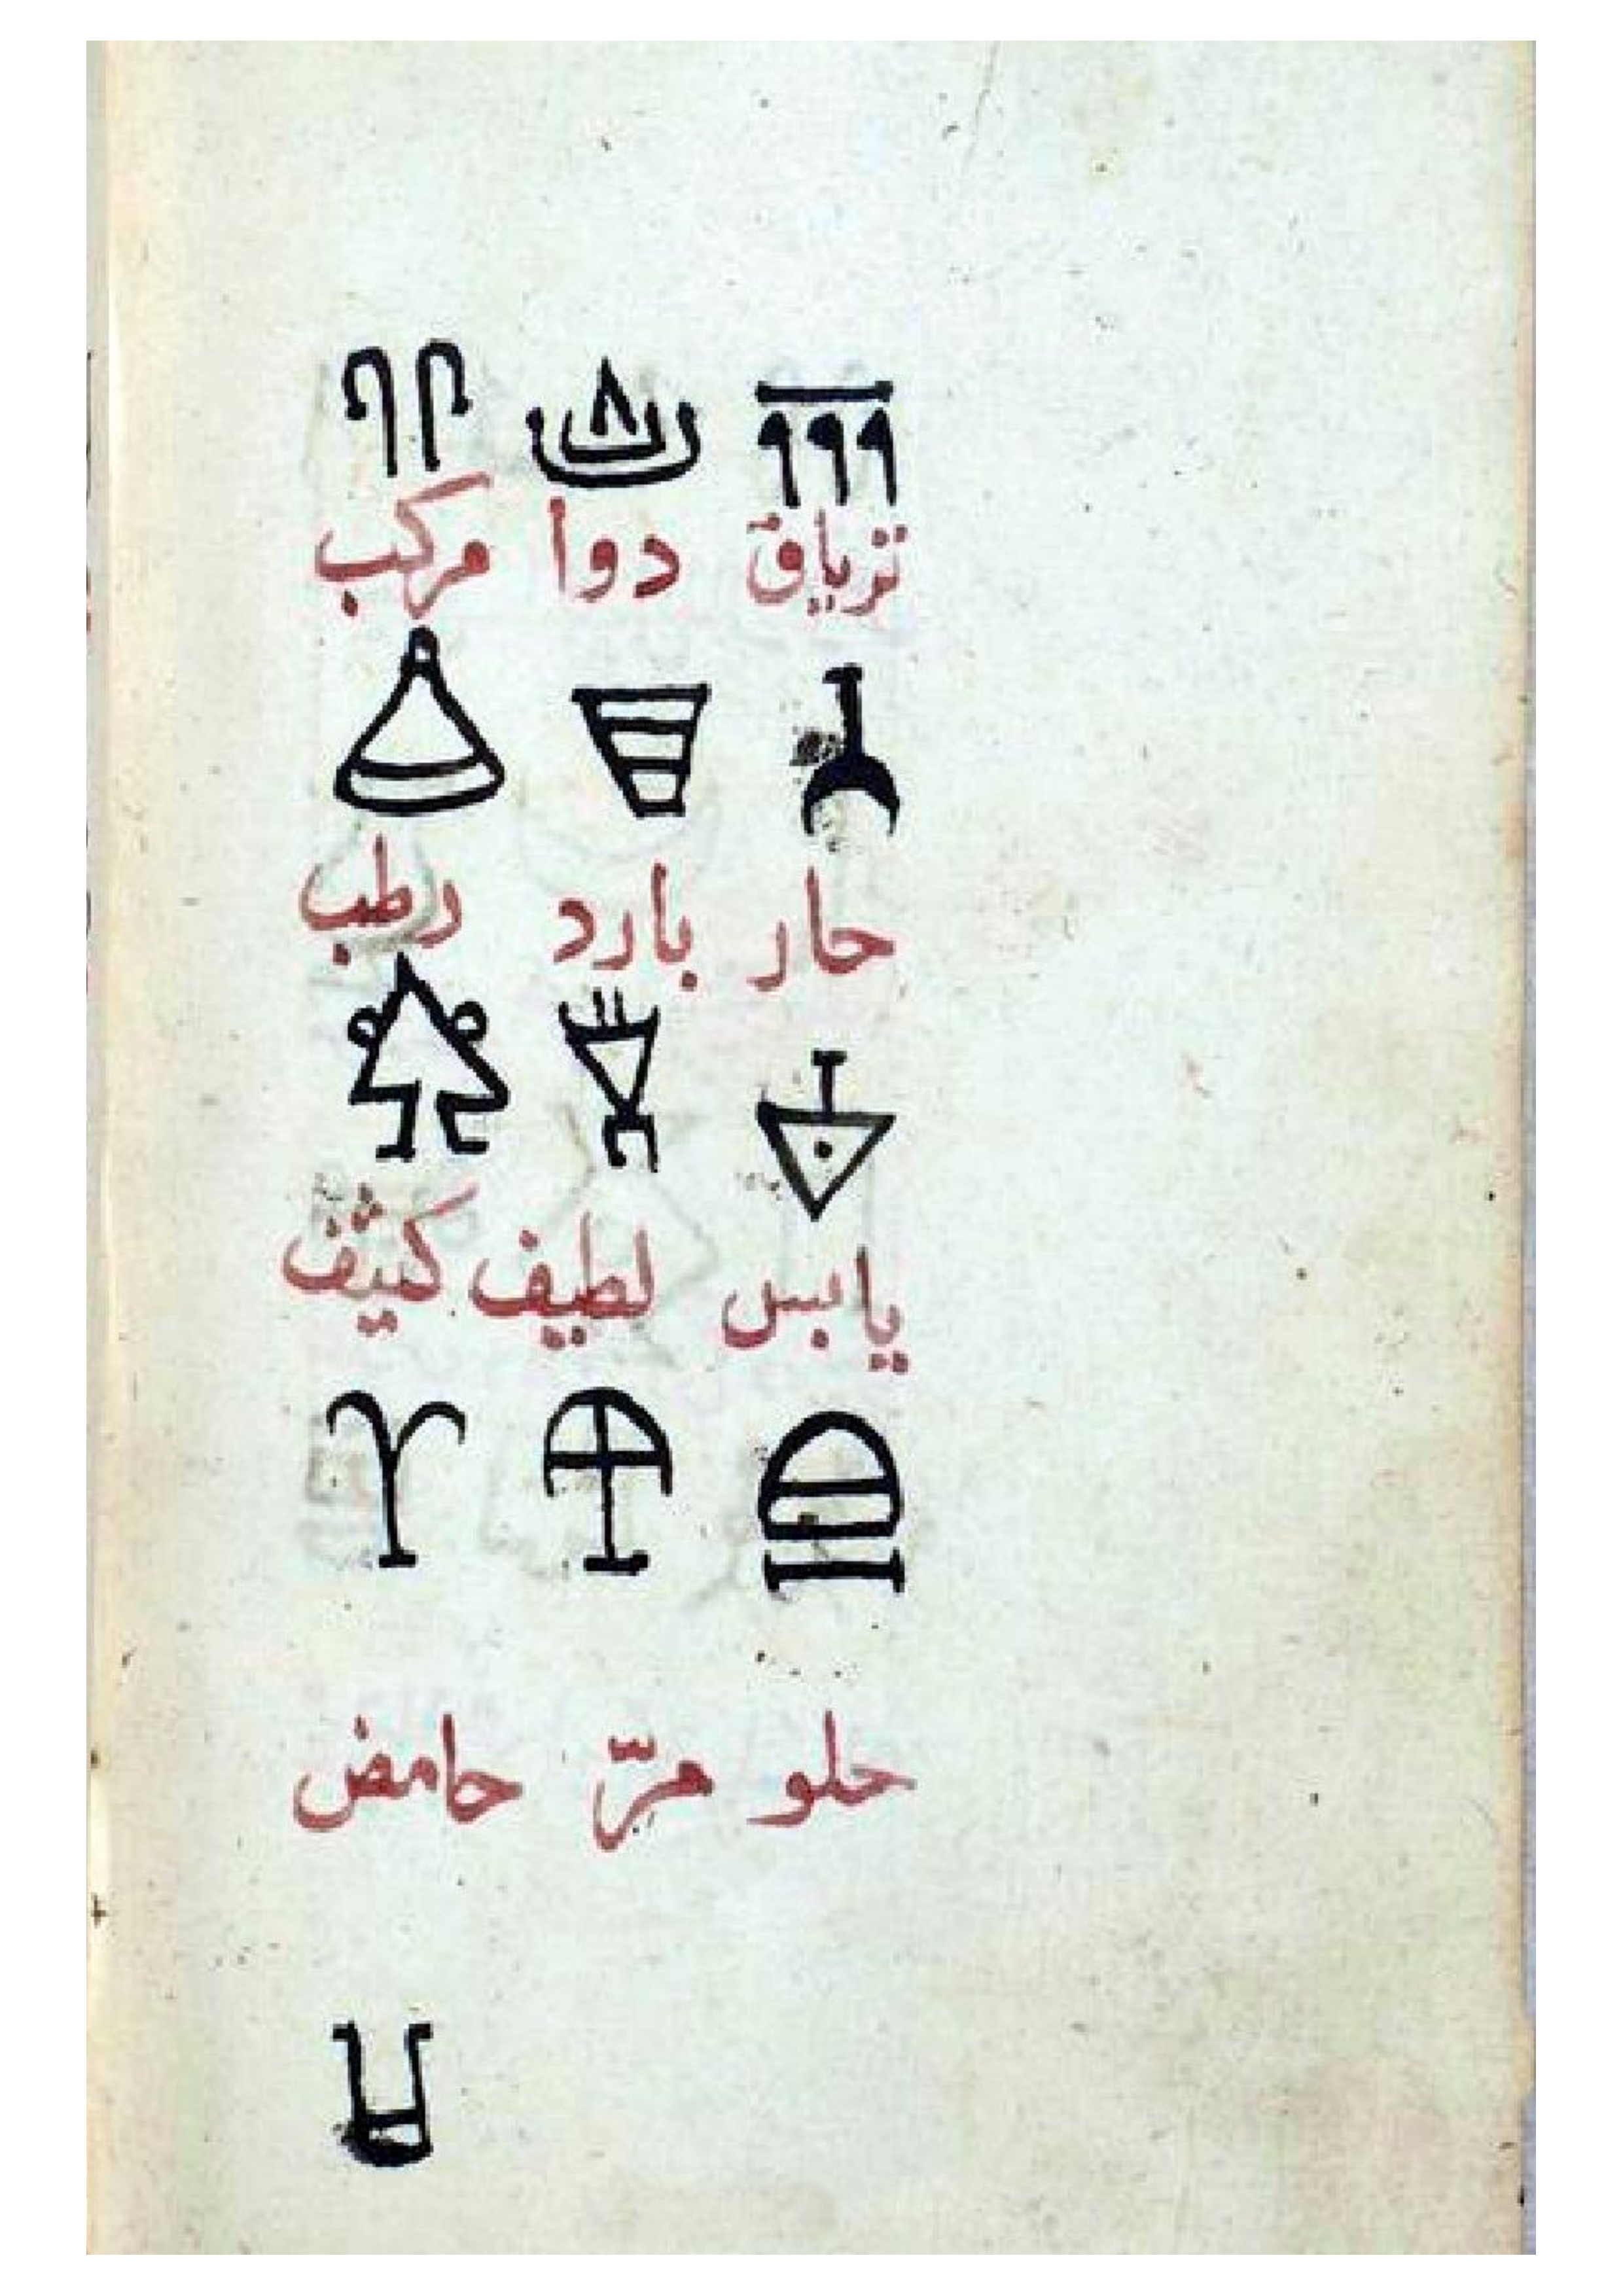 ترياق دوا مركب
حار بارد رطب
يابس لطيف كثيف
حلو مرّ حامض